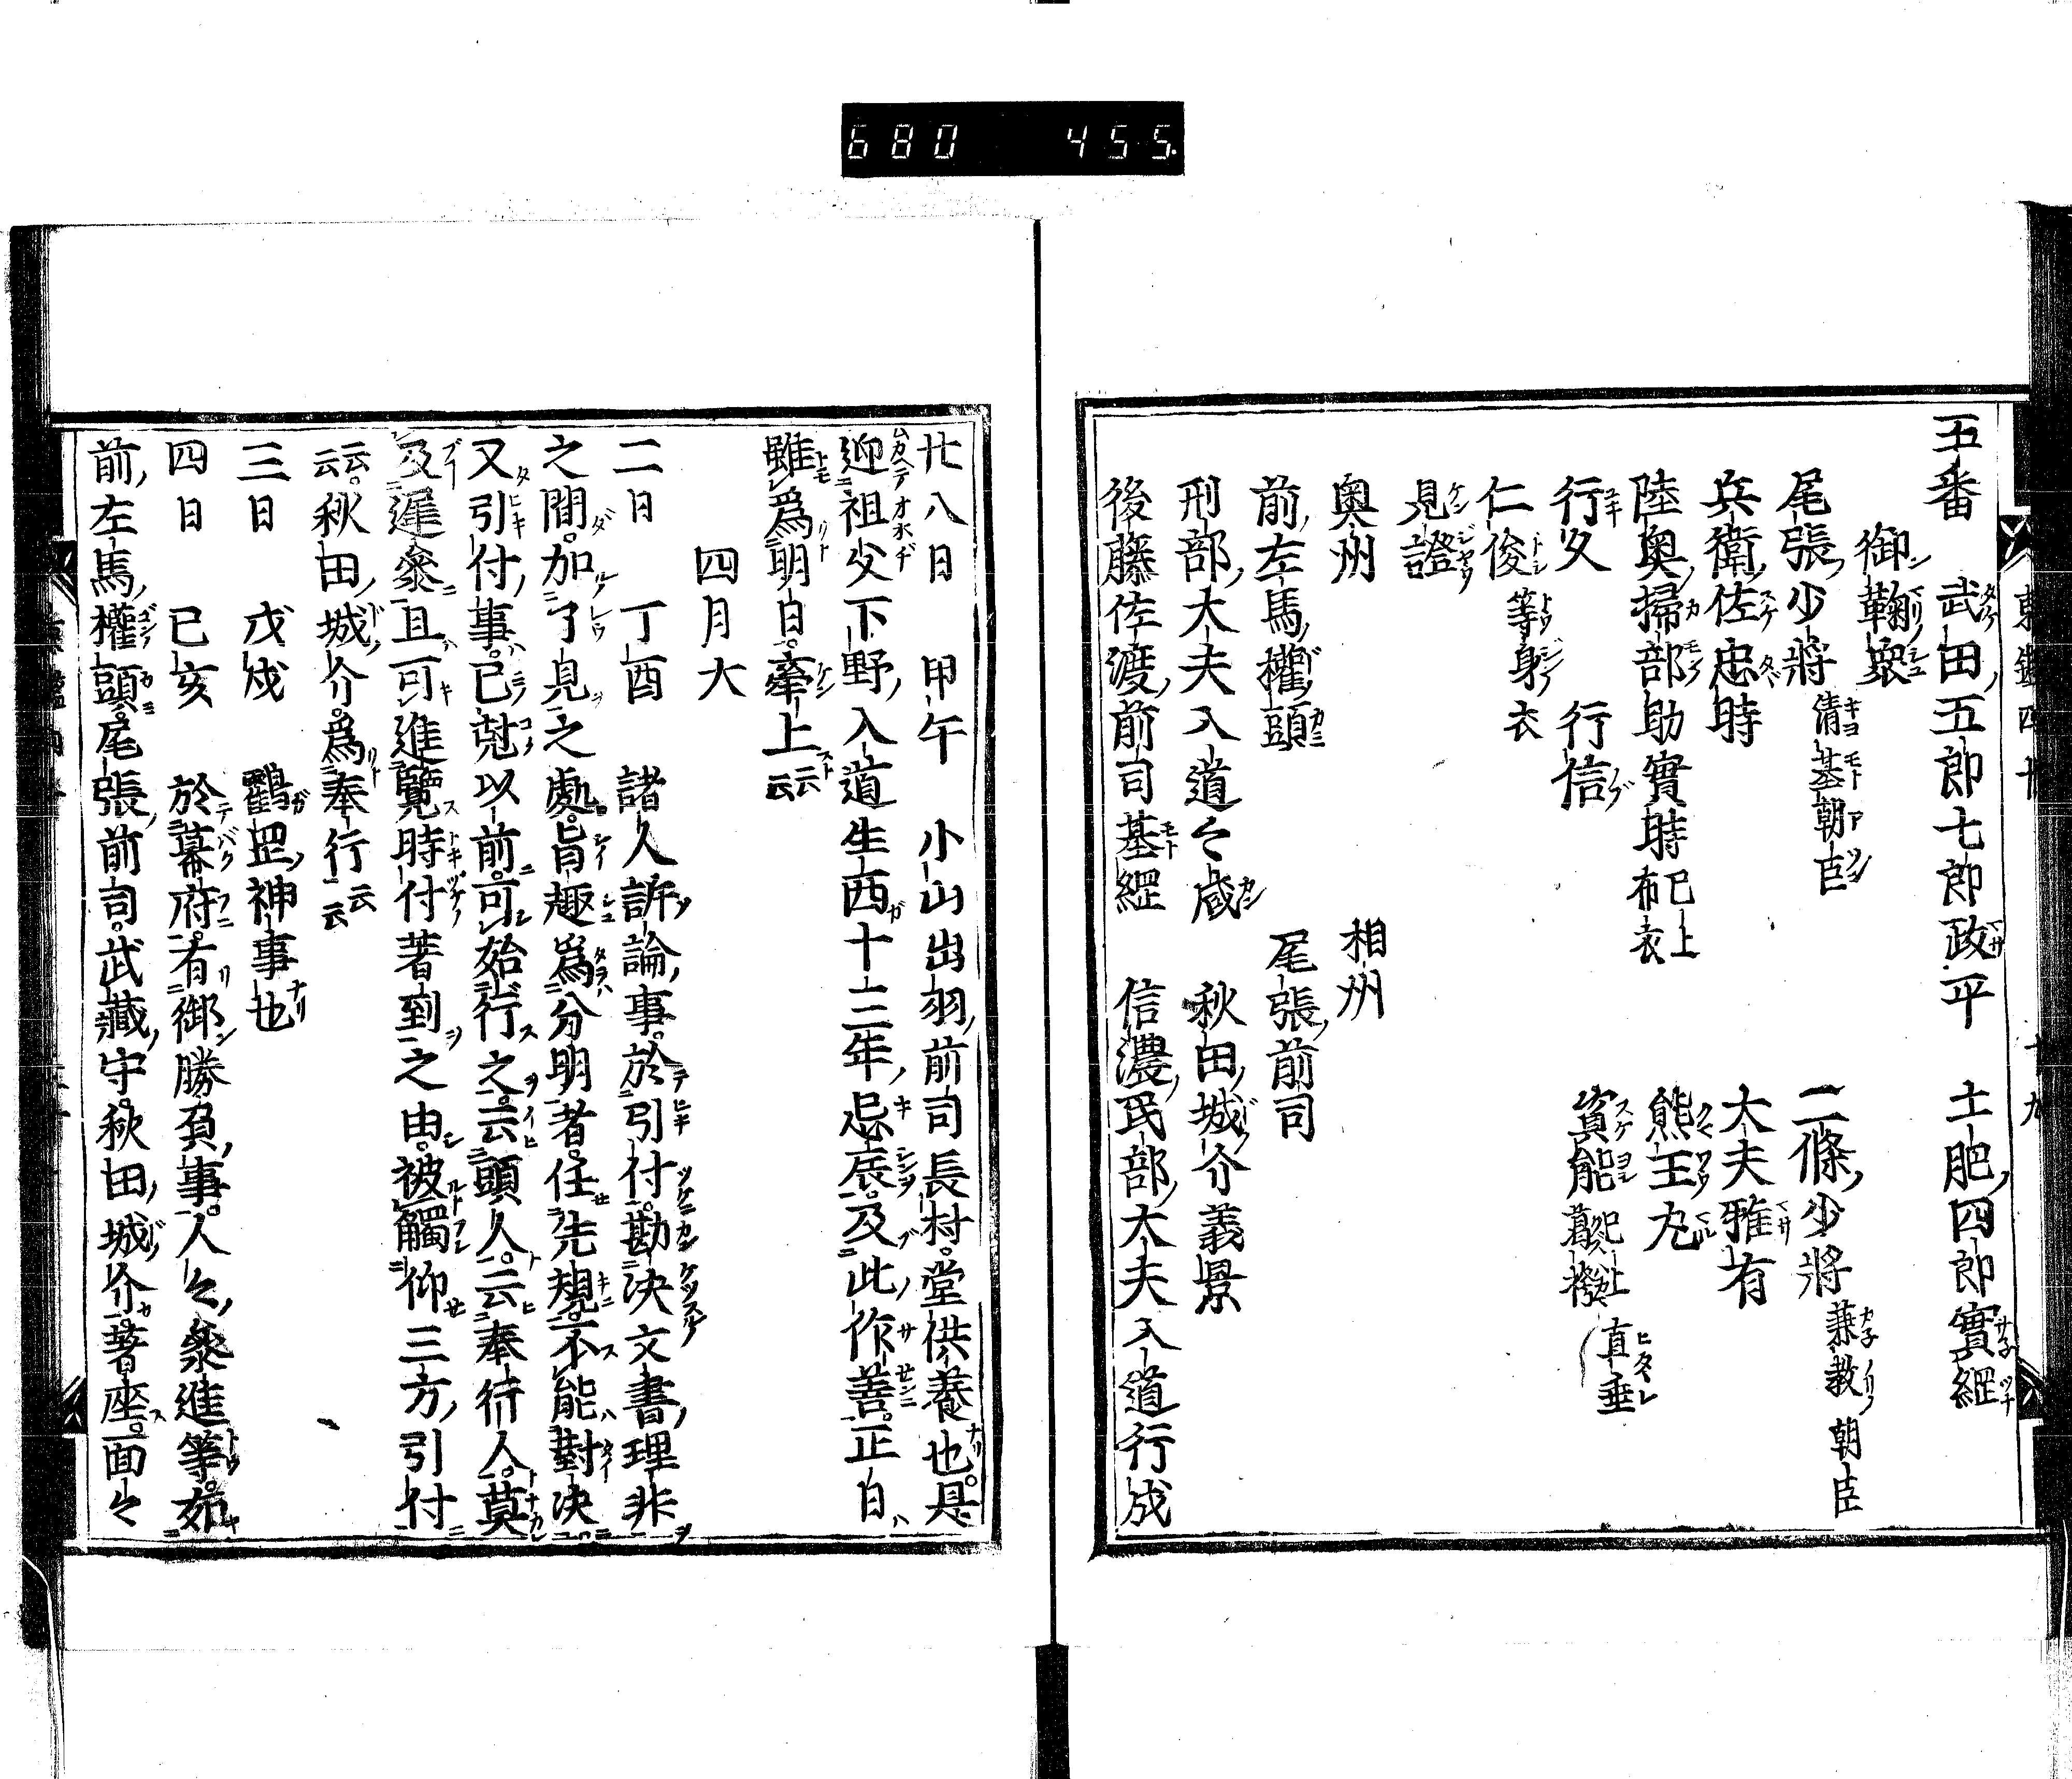 680 455
五番 武田五郎七郎政平 土肥四郎實綱
御鞠衆
尾張少將清基朝臣 二條少將兼教朝臣
兵衛佐忠時 大夫雅有
陸奥掃部助實時已上布衣 熊王丸
行久 行信 資能已上葛袴 直垂
仁俊等身衣
見證
奥州 相州
前左馬權頭 尾張前司
刑部大夫入道々成 秋田城介義景
後藤佐渡前司基綱 信濃民部大夫入道行成
廿八日 甲午 小山出羽前司長村堂供養也是
迎祖父下野入道生西十三年忌辰及此作善正日
雖為明日牽上云云
四月大
二日 丁酉 諸人訴論事於引付勘決文書理非
之間加了見之處旨趣為分明者任先規不能對決
又引付事已尅以前可始行之云頭人云奉行人莫
及遲參且可進覽時付著到之由被觸仰三方引付
云云秋田城介為奉行云云
三日 戊戌 鶴岡神事也
四日 己亥 於幕府有御勝負事人々參進等如
前左馬權頭尾張前司武藏守秋田城介著座面々